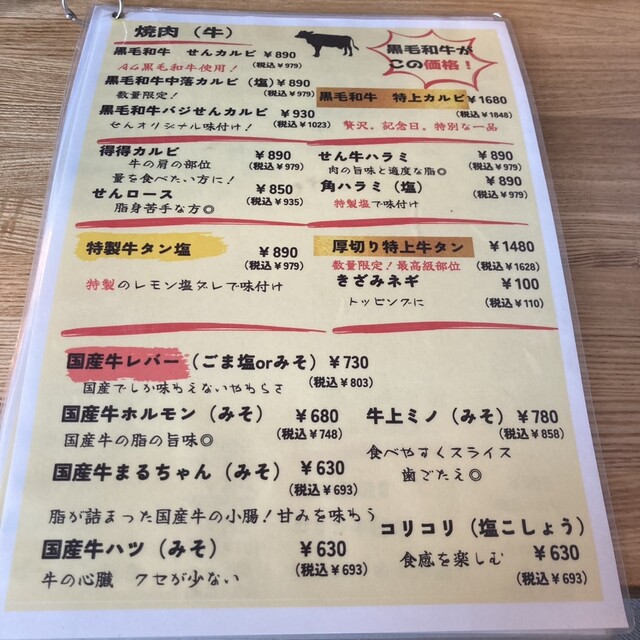 焼肉（牛）
黒毛和牛が
この価格！
黒毛和牛 せんカルビ ¥890
A5黒毛和牛使用！ (税込¥979)
黒毛和牛中落カルビ（塩）¥890
数量限定！ (税込¥979)
黒毛和牛バジせんカルビ ¥930
せんオリジナル味付け！ (税込¥1023)
黒毛和牛 特上カルビ ¥1680
(税込¥1848)
贅沢。記念日。特別な一品
得得カルビ ¥890
牛の肩の部位 (税込¥979)
量を食べたい方に！
せんロース ¥850
脂身苦手な方◎ (税込¥935)
せん牛ハラミ ¥890
肉の旨味と適度な脂◎ (税込¥979)
角ハラミ（塩） ¥890
特製塩で味付け (税込¥979)
特製牛タン塩 ¥890
(税込¥979)
特製のレモン塩ダレで味付け
厚切り特上牛タン ¥1480
数量限定！最高級部位 (税込¥1628)
きざみネギ ¥100
トッピングに (税込¥110)
国産牛レバー（ごま塩orみそ）¥730
国産でしか味わえないやわらさ (税込¥803)
国産牛ホルモン（みそ） ¥680
国産牛の脂の旨味◎ (税込¥748)
牛上ミノ（みそ） ¥780
(税込¥858)
食べやすくスライス
歯ごたえ◎
国産牛まるちゃん（みそ） ¥630
(税込¥693)
脂が詰まった国産牛の小腸！甘みを味わう
国産牛ハツ（みそ） ¥630
牛の心臓 クセが少ない (税込¥693)
コリコリ（塩こしょう）
食感を楽しむ ¥630
(税込¥693)